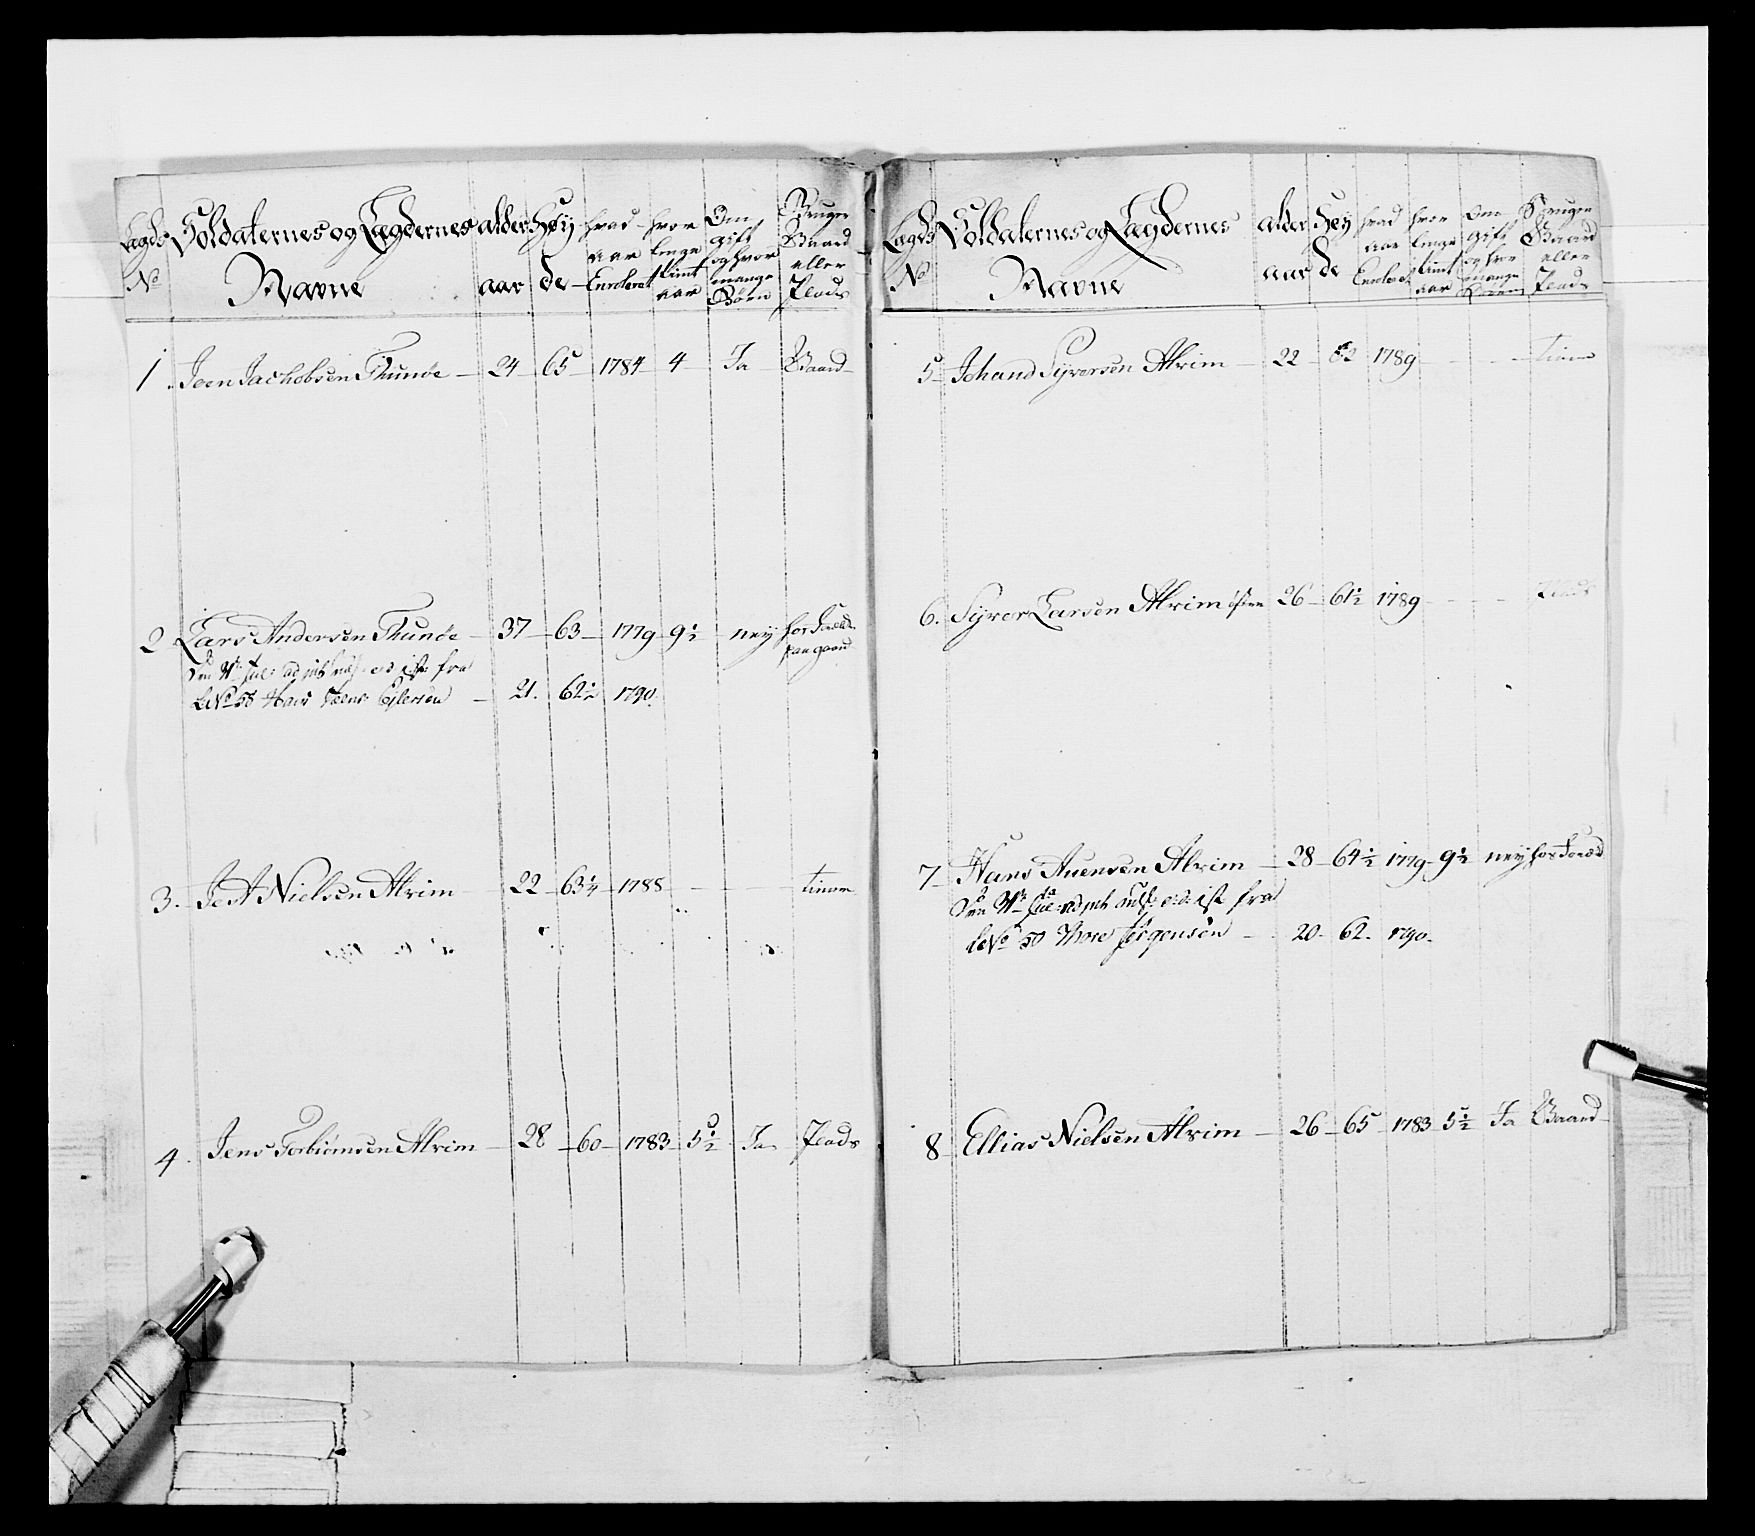 Lægds No | Soldaternes og Lægdernes Navne | alder aar | Høyde | hvad aar Enroleret | hvor lenge tient aar | Om gift og hvor mange Børn | Bruger Gaard eller Plads
1. Joen Jachobsen Thunøe — 24 — 65 — 1784 — 4 — Ja — Gaard
2 Lars Andersen Thunøe — 37 — 63 — 1779 — 9½ ney hos Foreld: paa gaard
fra
No 58 — 21. 62½ 1790.
3. Nielsen Alrim — 22 — 63¼ — 1788 — — — tiener
4. Jens Torbiørnsen Alrim — 28 — 60 — 1783 — 5½ Ja Plads
Lægds No | Soldaternes og Lægdernes Navne | alder aar | Høyde | hvad aar Enroleret | hvor lenge tient aar | Om gift og hvor mange Børn | Bruger Gaard eller Plads
5 Johand Syversen Alrim — 22 — 62 1789 — — — tiener
6. Syver Larsen Alrim øfre 26 — 61½ 1789 — — — Plads
7 Hans Auensen Alrim — 28 — 64½ 1779 — 9½ ney hos Foreld
fra
No 50 Thore Jørgensen — 20 — 62. 1790.
8 Ellias Nielsen Alrim — 26 — 65 — 1783 5½ Ja Gaard